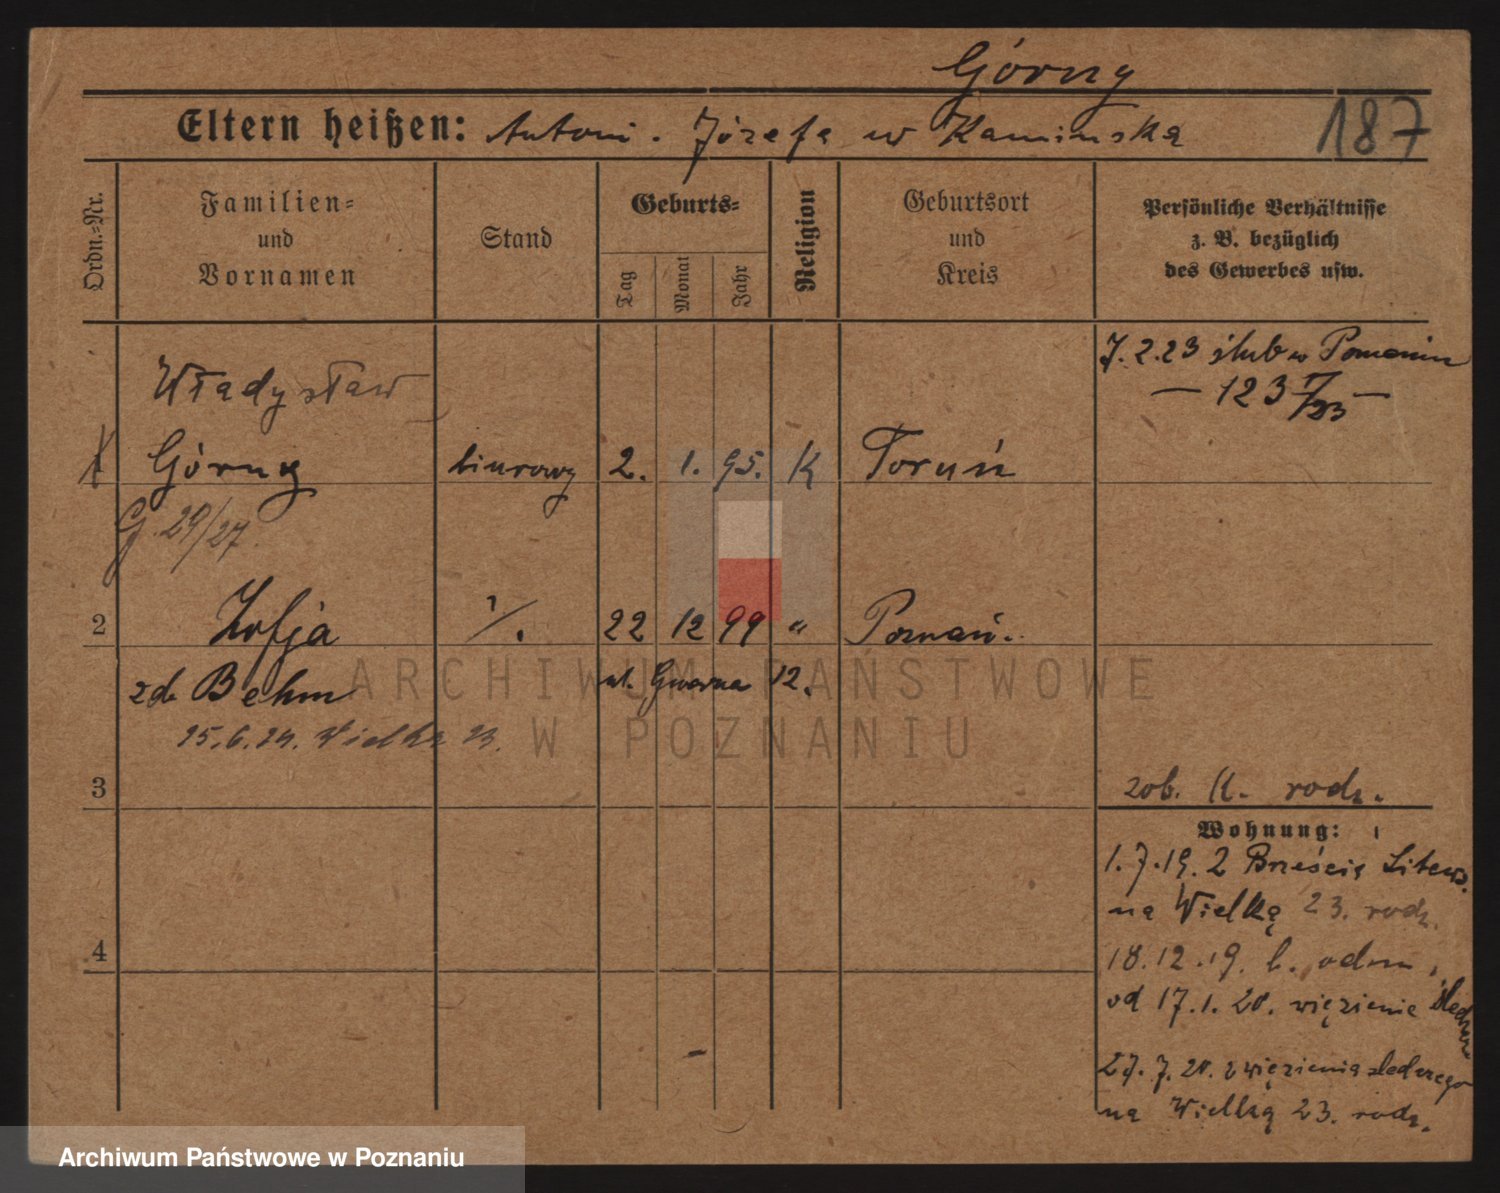 Górny
Eltern heißen: Antoni . Józefa w Kamińska
187
Ordn.-Nr.
Familien-
und
Vornamen
Stand
Geburts-
Tag
Monat
Jahr
Religion
Geburtsort
und
Kreis
Persönliche Verhältnisse
z. B. bezüglich
des Gewerbes usw.
7.2.23 ślub w Poznaniu
— 123 I/23 —
Władysław
1 Górny biurowy 2. 1. 95. K Toruń
G. 29/27.
2 Zofja ./. 22 12 99 " Poznań.
zd. Behm ul. Gwarna 12.
25.6.24. Wielka 23.
3
zob. K. rodz.
Wohnung:
1.7.19. z Brześcia Litews.
na Wielką 23. rodz.
18.12.19. b. odm.
4
od 17.1.20. więzienie śledcze
27.7.20. z więzienia śledczego
na Wielką 23. rodz.
ARCHIWUM PAŃSTWOWE
W POZNANIU
Archiwum Państwowe w Poznaniu